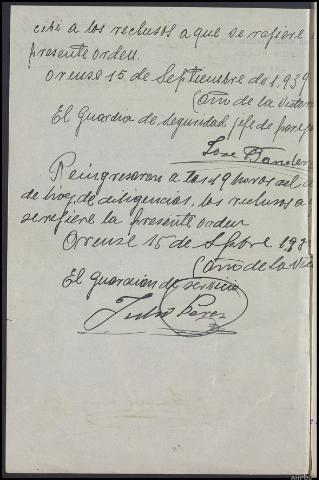 cibí a los reclusos a que se refiere
presente orden.
Orense 15 de Septiembre de 1.939
(año de la Victor
El Guardia de Seguridad, jefe de pareja
José
Reingresaron a las 19 horas del
de hoy, de diligencias, los reclusos a
se refiere la presente orden
Orense 15 de Sbre 193
(año de la Vic
El Guardian de servicio
Julio Perez